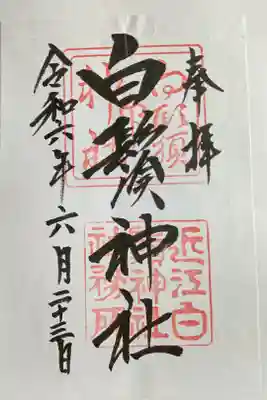 奉拝
白鬚神社
令和六年六月二十三日
近江白
鬚神社
社務所